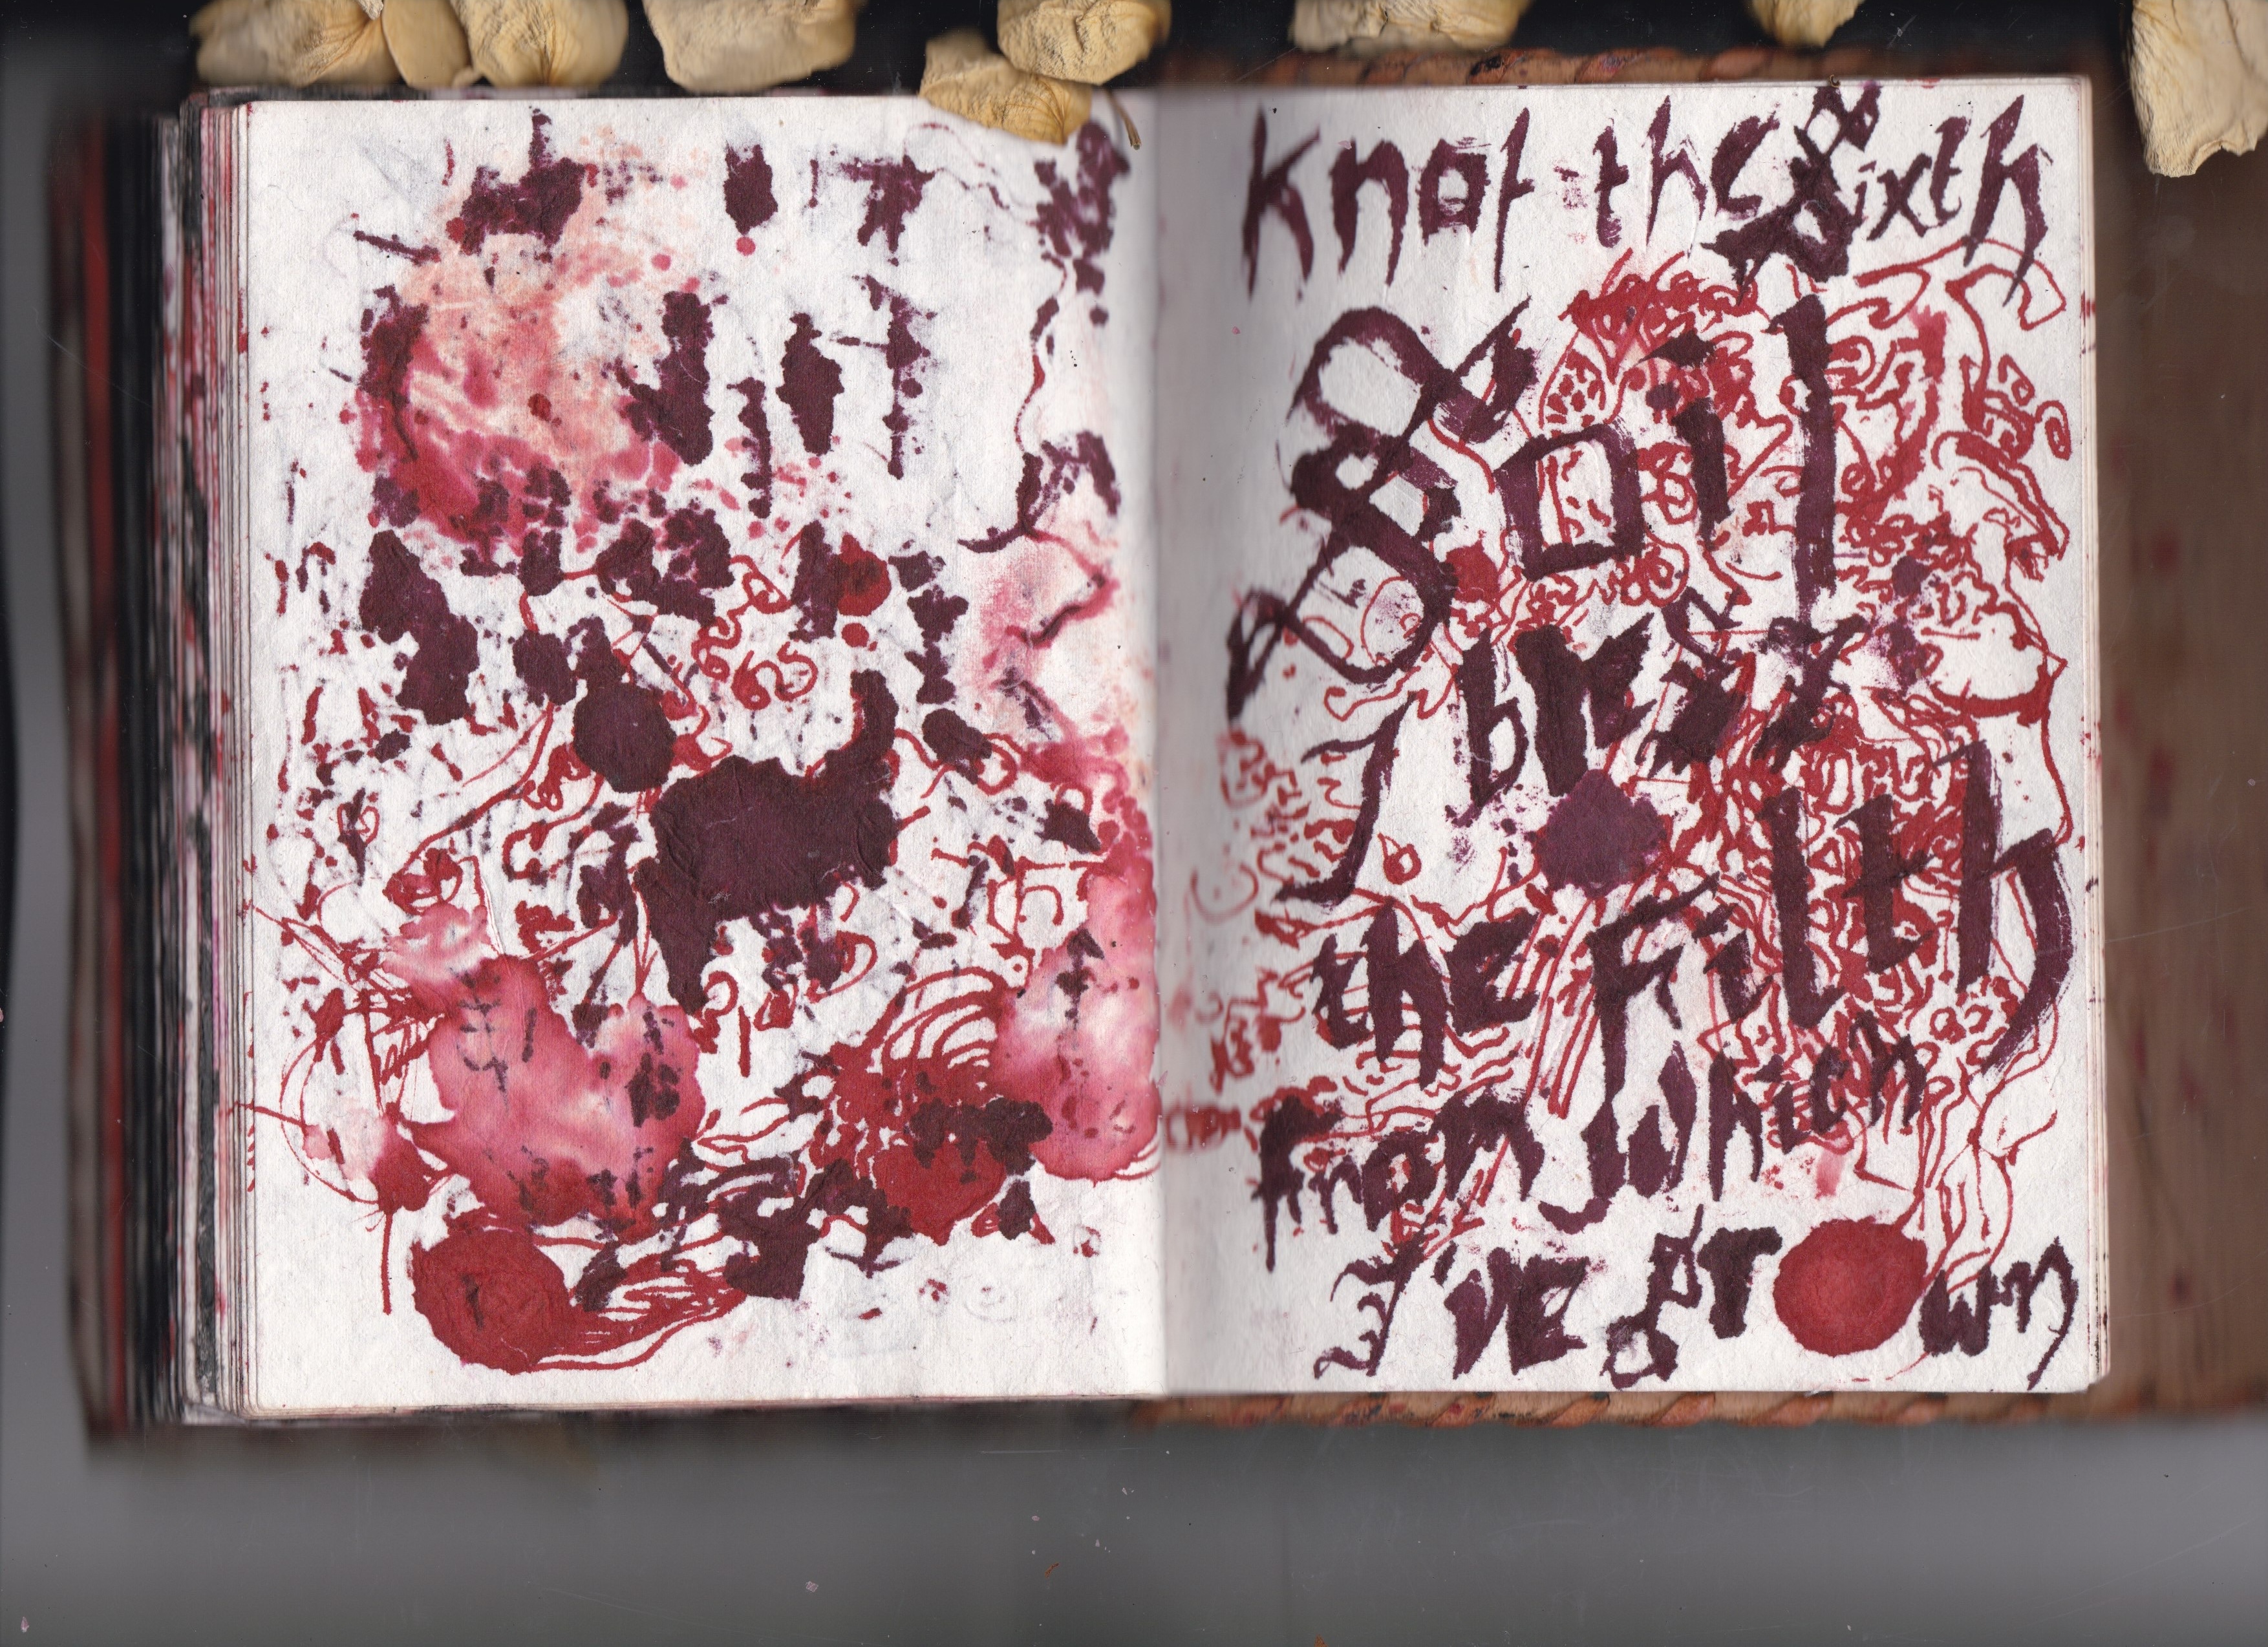 Knot the Sixth
Soil
I
the Filth
From Which
I've grown